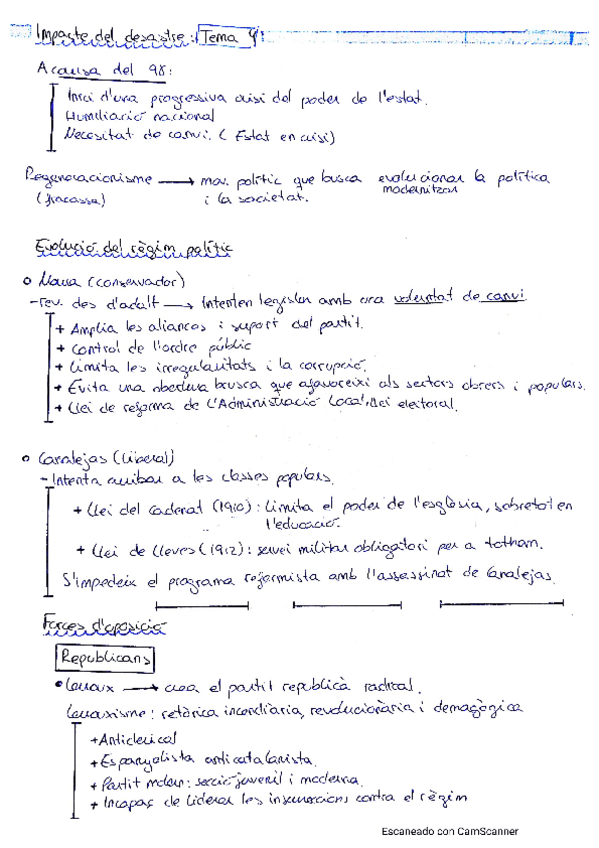 Impacte del desastre: Tema 9:
A causa del 98:
Inici d'una progressiva crisi del poder de l'estat.
Humiliació nacional
Necessitat de canvi. (Estat en crisi)
Regeneracionisme → mov. polític que busca evolucionar la política
modernitzar
(fracassa) i la societat.
Evolució del règim polític
o Maura (conservador)
- rev. des d'adalt → Intenten legislar amb una voluntat de canvi
+ Amplia les aliances i suport del partit.
+ Control de l'ordre públic
+ Limita les irregularitats i la corrupció.
+ Evita una obertura brusca que afavoreixi als sectors obrers i populars.
+ Llei de reforma de l'Administració Local, llei electoral.
o Canalejas (Liberal)
- Intenta arribar a les classes populars.
+ Llei del cadenat (1910): Limita el poder de l'església, sobretot en
l'educació.
+ Llei de lleves (1912): servei militar obligatori per a tothom.
S'impedeix el programa reformista amb l'assessinat de Canalejas.
Forces d'oposició
Republicans
• Lerroux → crea el partit republicà radical.
Lerrouxisme: retòrica incendiària, revolucionària i demagògica
+ Anticlerical
+ Espanyolista anticatalanista.
+ Partit modern: secció juvenil i moderna.
+ Incapaç de liderar les insurreccions contra el règim
Escaneado con CamScanner